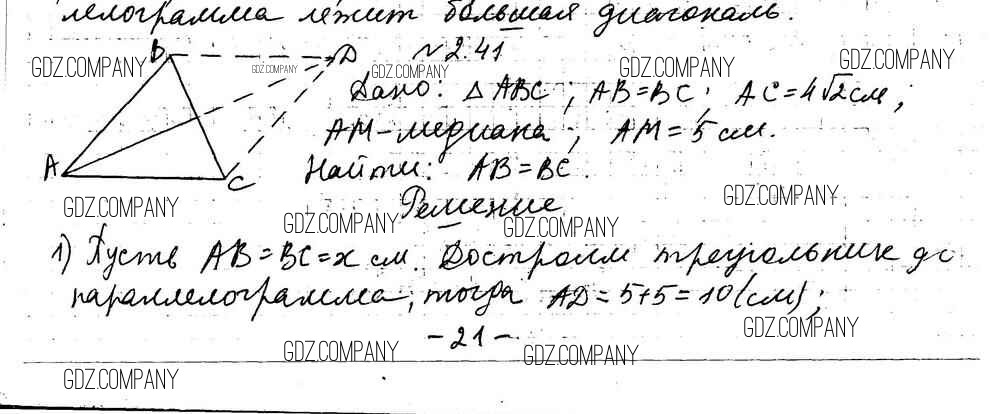 лелограмма лежит большая диагональ.
B D N 2.41
Дано: △ ABC ; AB=BC; AC=4√2 см;
AM-медиана; AM=5 см.
A C Найти: AB=BC.
Решение
1) Пусть AB=BC=x см. Достроим треугольник до
параллелограмма, тогда AD=5+5=10 (см);
-21-
GDZ.COMPANY
GDZ.COMPANY
GDZ.COMPANY
GDZ.COMPANY
GDZ.COMPANY
GDZ.COMPANY
GDZ.COMPANY
GDZ.COMPANY
GDZ.COMPANY
GDZ.COMPANY
GDZ.COMPANY
GDZ.COMPANY
GDZ.COMPANY